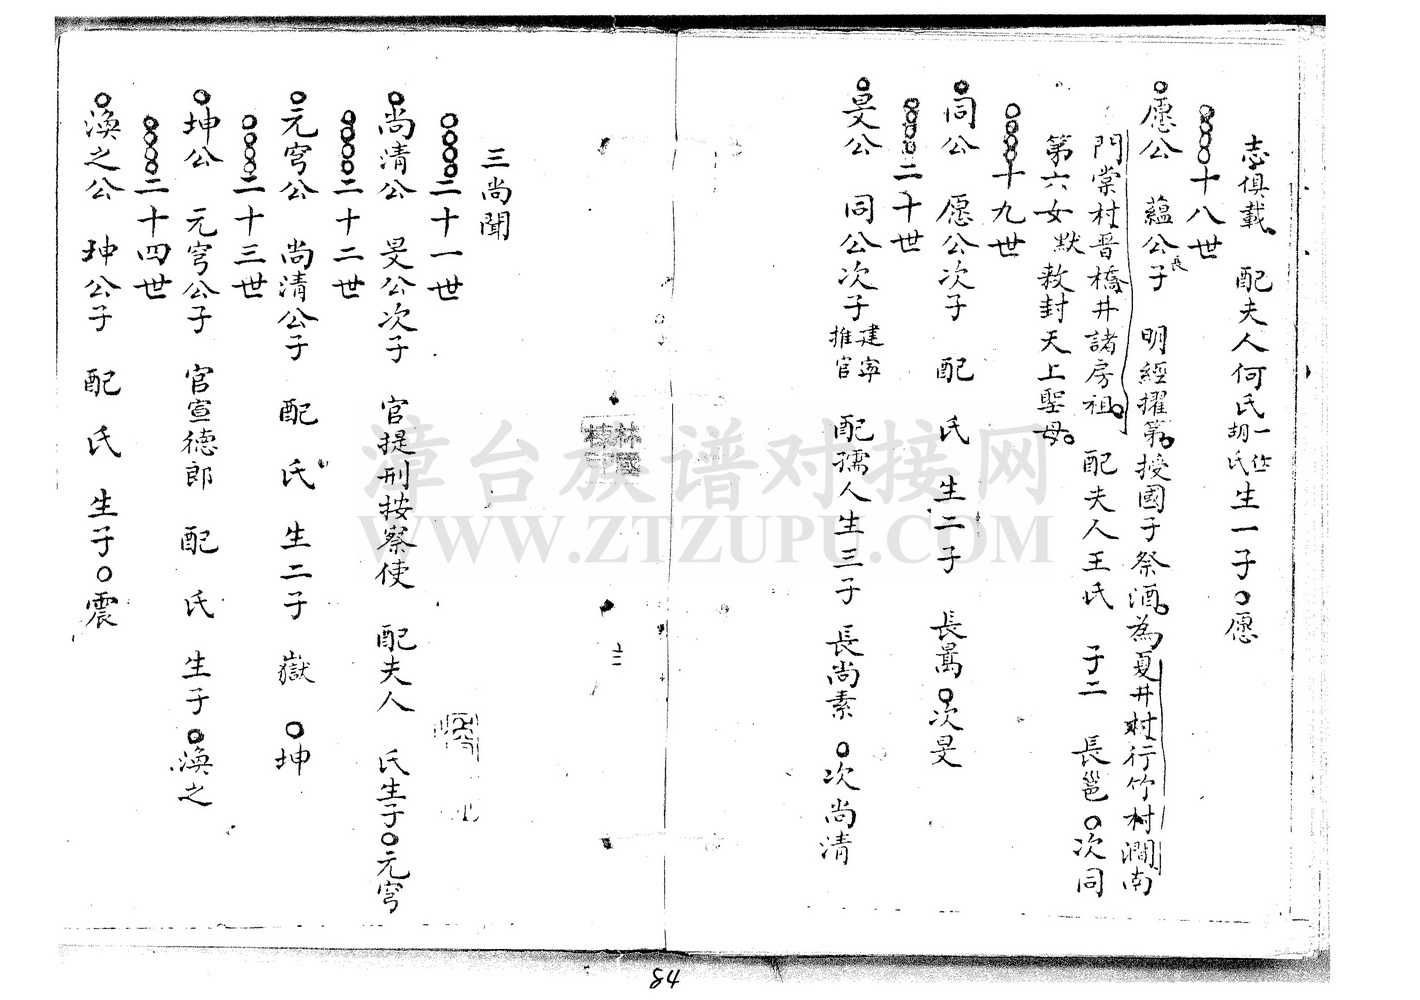 志俱載 配夫人何氏一作胡氏生一子○愿
○○○○十八世
○愿公 蘊公長子 明經擢第授國子祭酒為夏井村行竹村澗南
門棠村晉橋井諸房祖 配夫人王氏 子二 長邕○次同
第六女默敕封天上聖母
○○○○十九世
○同公 愿公次子 配 氏 生二子 長暠○次旻
○○○○二十世
○旻公 同公次子建寧推官 配孺人生三子 長尚素○次尚清
三尚聞
○○○○二十一世
○尚清公 旻公次子 官提刑按察使 配夫人 氏生子○元穹
○○○○二十二世
○元穹公 尚清公子 配 氏 生二子 嶽○坤
○○○○二十三世
○坤公 元穹公子 官宣德郎 配 氏 生子○渙之
○○○○二十四世
○渙之公 坤公子 配 氏 生子○震
林國棟印
十二
漳台族谱对接网
WWW.ZTZUPU.COM
84